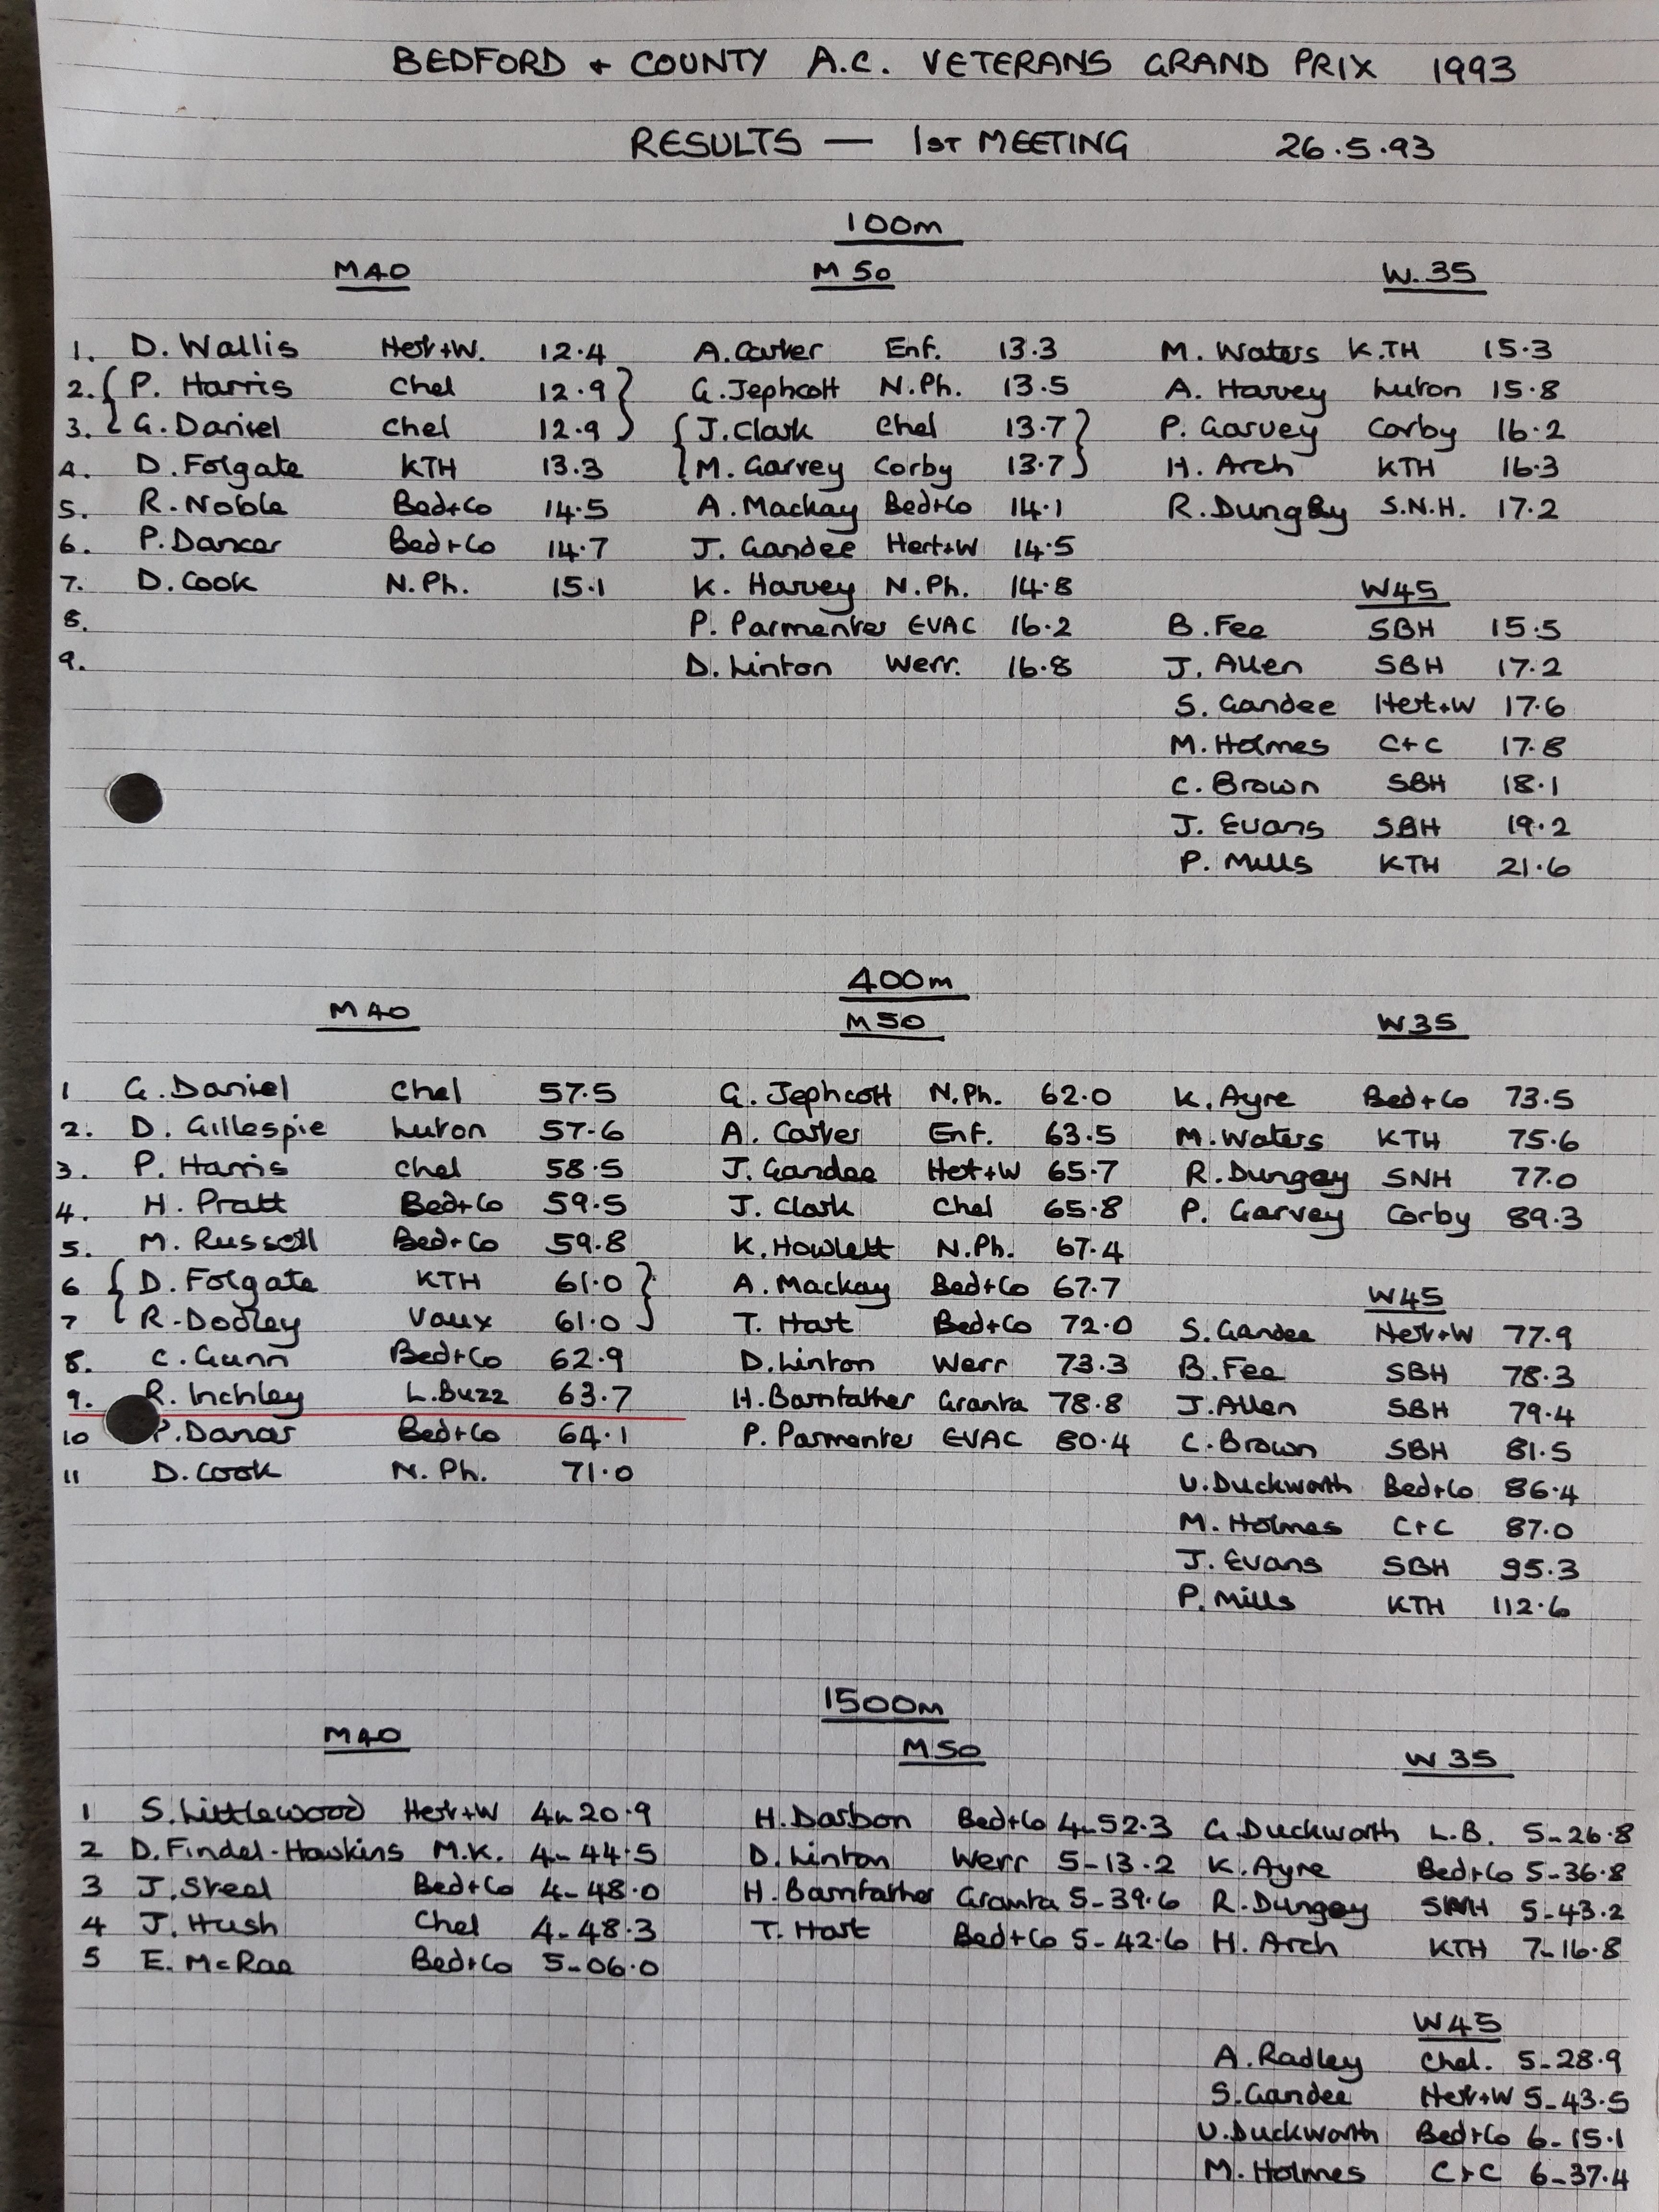 BEDFORD + COUNTY A.C. VETERANS GRAND PRIX 1993
RESULTS — 1ST MEETING 26.5.93
100m
M40 M50 W.35
1. D. Wallis Hert+W. 12.4 A. Carter Enf. 13.3 M. Waters K.TH 15.3
2. { P. Harris Chel 12.9 } G. Jephcott N.Ph. 13.5 A. Harvey Luton 15.8
3. { G. Daniel Chel 12.9 } { J. Clark Chel 13.7 } P. Garvey Corby 16.2
4. D. Folgate KTH 13.3 { M. Garvey Corby 13.7 } H. Arch KTH 16.3
5. R. Noble Bed+Co 14.5 A. Mackay Bed+Co 14.1 R. Dungey S.N.H. 17.2
6. P. Dancer Bed+Co 14.7 J. Gandee Hert+W 14.5
7. D. Cook N.Ph. 15.1 K. Harvey N.Ph. 14.8 W45
8. P. Parmenter EVAC 16.2 B. Fee SBH 15.5
9. D. Linton Werr. 16.8 J. Allen SBH 17.2
S. Gandee Hert+W 17.6
M. Holmes C+C 17.8
C. Brown SBH 18.1
J. Evans SBH 19.2
P. Mills KTH 21.6
400m
M40 M50 W35
1 G. Daniel Chel 57.5 G. Jephcott N.Ph. 62.0 K. Ayre Bed+Co 73.5
2. D. Gillespie Luton 57.6 A. Carter Enf. 63.5 M. Waters KTH 75.6
3. P. Harris Chel 58.5 J. Gandee Hert+W 65.7 R. Dungey SNH 77.0
4. H. Pratt Bed+Co 59.5 J. Clark Chel 65.8 P. Garvey Corby 89.3
5. M. Russell Bed+Co 59.8 K. Howlett N.Ph. 67.4
6 { D. Folgate KTH 61.0 } A. Mackay Bed+Co 67.7 W45
7 { R. Dodley Vaux 61.0 } T. Hart Bed+Co 72.0 S. Gandee Hert+W 77.9
8. C. Gunn Bed+Co 62.9 D. Linton Werr 73.3 B. Fee SBH 78.3
9. R. Inchley L. Buzz 63.7 H. Barnfather Granta 78.8 J. Allen SBH 79.4
10 P. Dancer Bed+Co 64.1 P. Parmenter EVAC 80.4 C. Brown SBH 81.5
11 D. Cook N. Ph. 71.0 U. Duckworth Bed+Co 86.4
M. Holmes C+C 87.0
J. Evans SBH 95.3
P. Mills KTH 112.6
1500m
M40 M50 W35
1 S. Littlewood Hert+W 4-20.9 H. Darbon Bed+Co 4-52.3 G. Duckworth L.B. 5-26.8
2 D. Findel-Hawkins M.K. 4-44.5 D. Linton Werr 5-13.2 K. Ayre Bed+Co 5-36.8
3 J. Steel Bed+Co 4-48.0 H. Barnfather Granta 5-39.6 R. Dungey SNH 5-43.2
4 J. Hush Chel 4-48.3 T. Hart Bed+Co 5-42.6 H. Arch KTH 7-16.8
5 E. McRae Bed+Co 5-06.0
W45
A. Radley Chel. 5-28.9
S. Gandee Hert+W 5-43.5
U. Duckworth Bed+Co 6-15.1
M. Holmes C+C 6-37.4